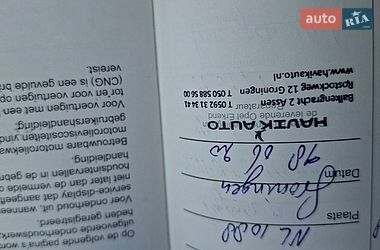 Op de volgende pagina's wor
uitgevoerde onderhoudswerk
den geregistreerd
Voor onderhoud
uit, wanneer
service-display dat aangeeft
niet later dan de vermelde o
houdsintervallen in de gebr
handleiding.
Betrouwbare motoroliekwa
motorolieviscositeiten vind
gebruikershandleiding.
Voor voertuigen met een
tor en voor voertuigen op
(CNG) is een gevulde bra
vereist.
NL
Plaats
Groningen
Datum
HAVIK AUTO
de leverende Opel Erkend
Reparateur
Balkengracht 2 Assen T 0592 31 34 41
Rostockweg 12 Groningen T 050 588 56 00
www.havikauto.nl
auto RIA.com